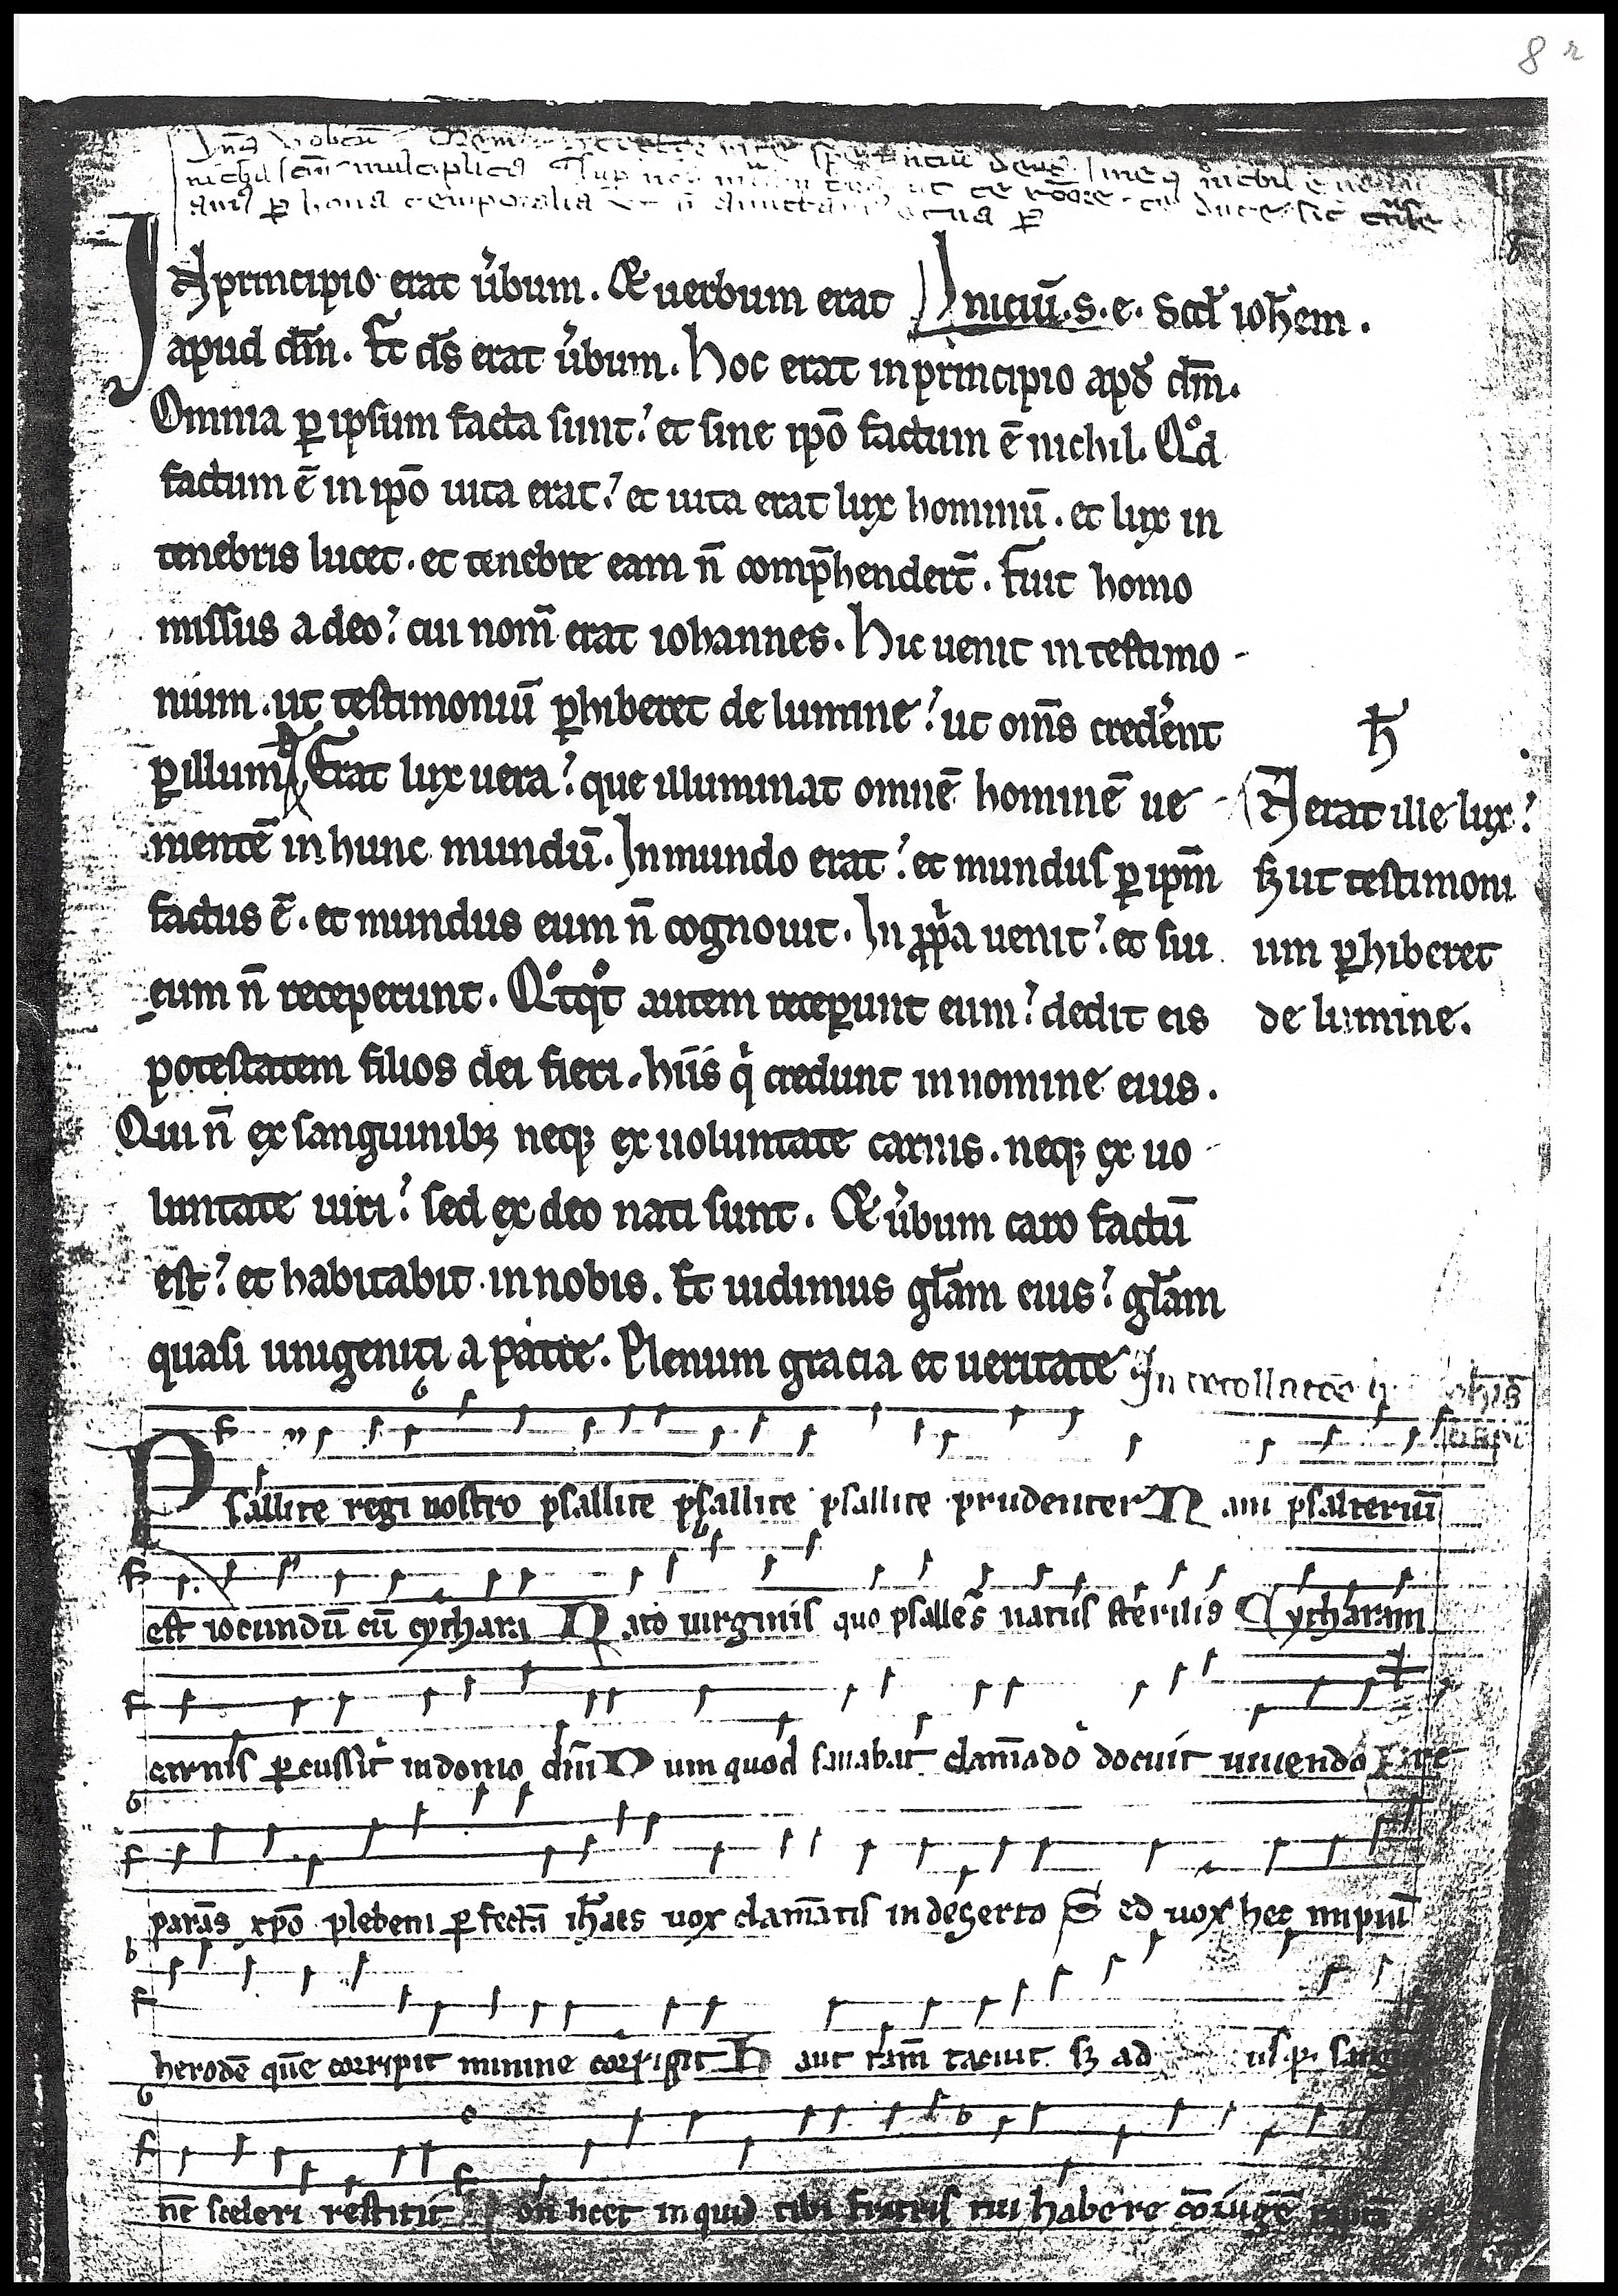 8 r
nichil multiplica
qui ꝑ bona temporalia
IN principio erat u̓bum. Et uerbum erat Iniciū. s. e. scd̄ ioh̄em.
apud dm̄. Et ds̄ erat u̓bum. hoc erat in principio apḋ dm̄.
Omnia ꝑ ipsum facta sunt; et sine ip̄o factum ē nichil. Qͦd
factum ē in ip̄o uita erat; et uita erat lux hominū. et lux in
tenebris lucet. et tenebre eam n̄ comp̄henderт̄. Fuit homo
missus a deo; cui nom̄ erat iohannes. hic uenit in testimo-
nium. ut testimoniū ꝑhiberet de lumine; ut om̄s cred̓ent
ꝑ illum Erat lux uera; que illuminat omnē hominē ue-
nientē in hunc mundū. In mundo erat; et mundus ꝑ ipm̄
factus ē. et mundus eum n̄ cognouit. In ꝓp̓a uenit; et sui
eum n̄ receperunt. Qͦtqͦt autem receꝑunt eum; dedit eis
potestatem filios dei fieri. hiis qi credunt in nomine eius.
Qui n̄ ex sanguinibꝫ neqꝫ ex uoluntate carnis. neqꝫ ex uo-
luntate uiri; sed ex deo nati sunt. Et u̓bum caro factū
est; et habitabit in nobis. Et uidimus gl̄am eius; gl̄am
quasi unigeniti a patre. Plenum gracia et ueritate
h̄
N erat ille lux;
sꝫ ut testimoni
um ꝑhiberet
de lumine.
In decollatōe
Psallite regi nostro psallite psallite psallite prudenter Nam psalteriū
est iocundū cū cythara Nato uirginis quo psalles̄ natus sterilis Cytharam
carnis ꝑcussit in domo dn̄i Dum quod sonabat clam̄ado docuit uiuendo Pre
parās xp̄o plebem ꝑfectā ih̄ates uox clamātis in deserto Sed uox hec impiū
herodē quē corripit minime corrigit Haut tam̄ tacuit sꝫ ad usqꝫ
nē sceleri restitit Non licet inquid tibi fratris tui habere cōiugē